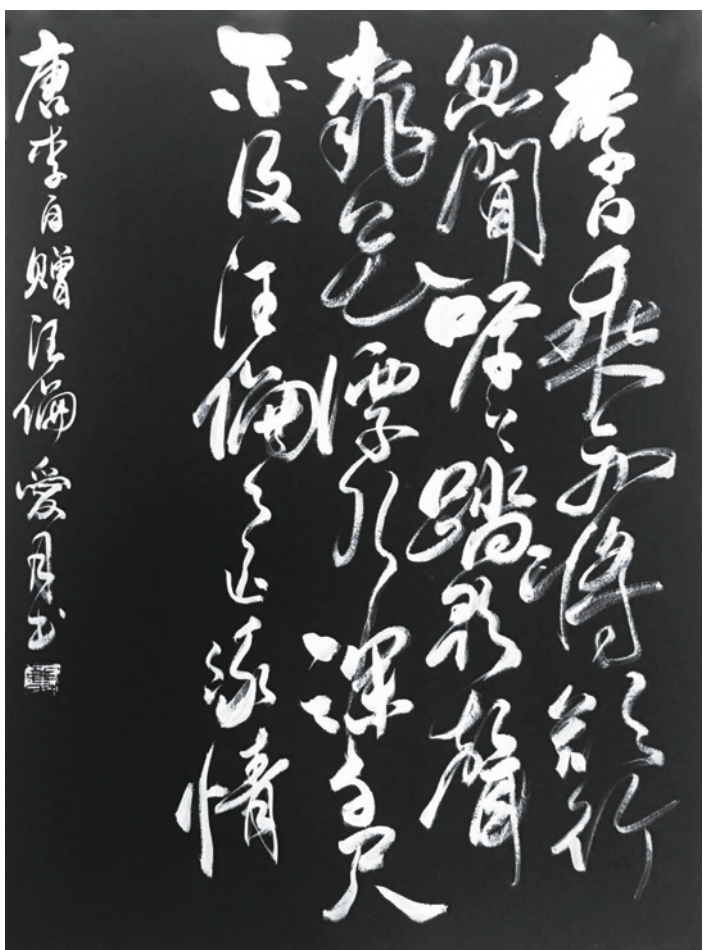 李白乘舟將欲行
忽聞岸上踏歌聲
桃花潭水深千尺
不及汪倫送我情
唐李白贈汪倫 愛月书